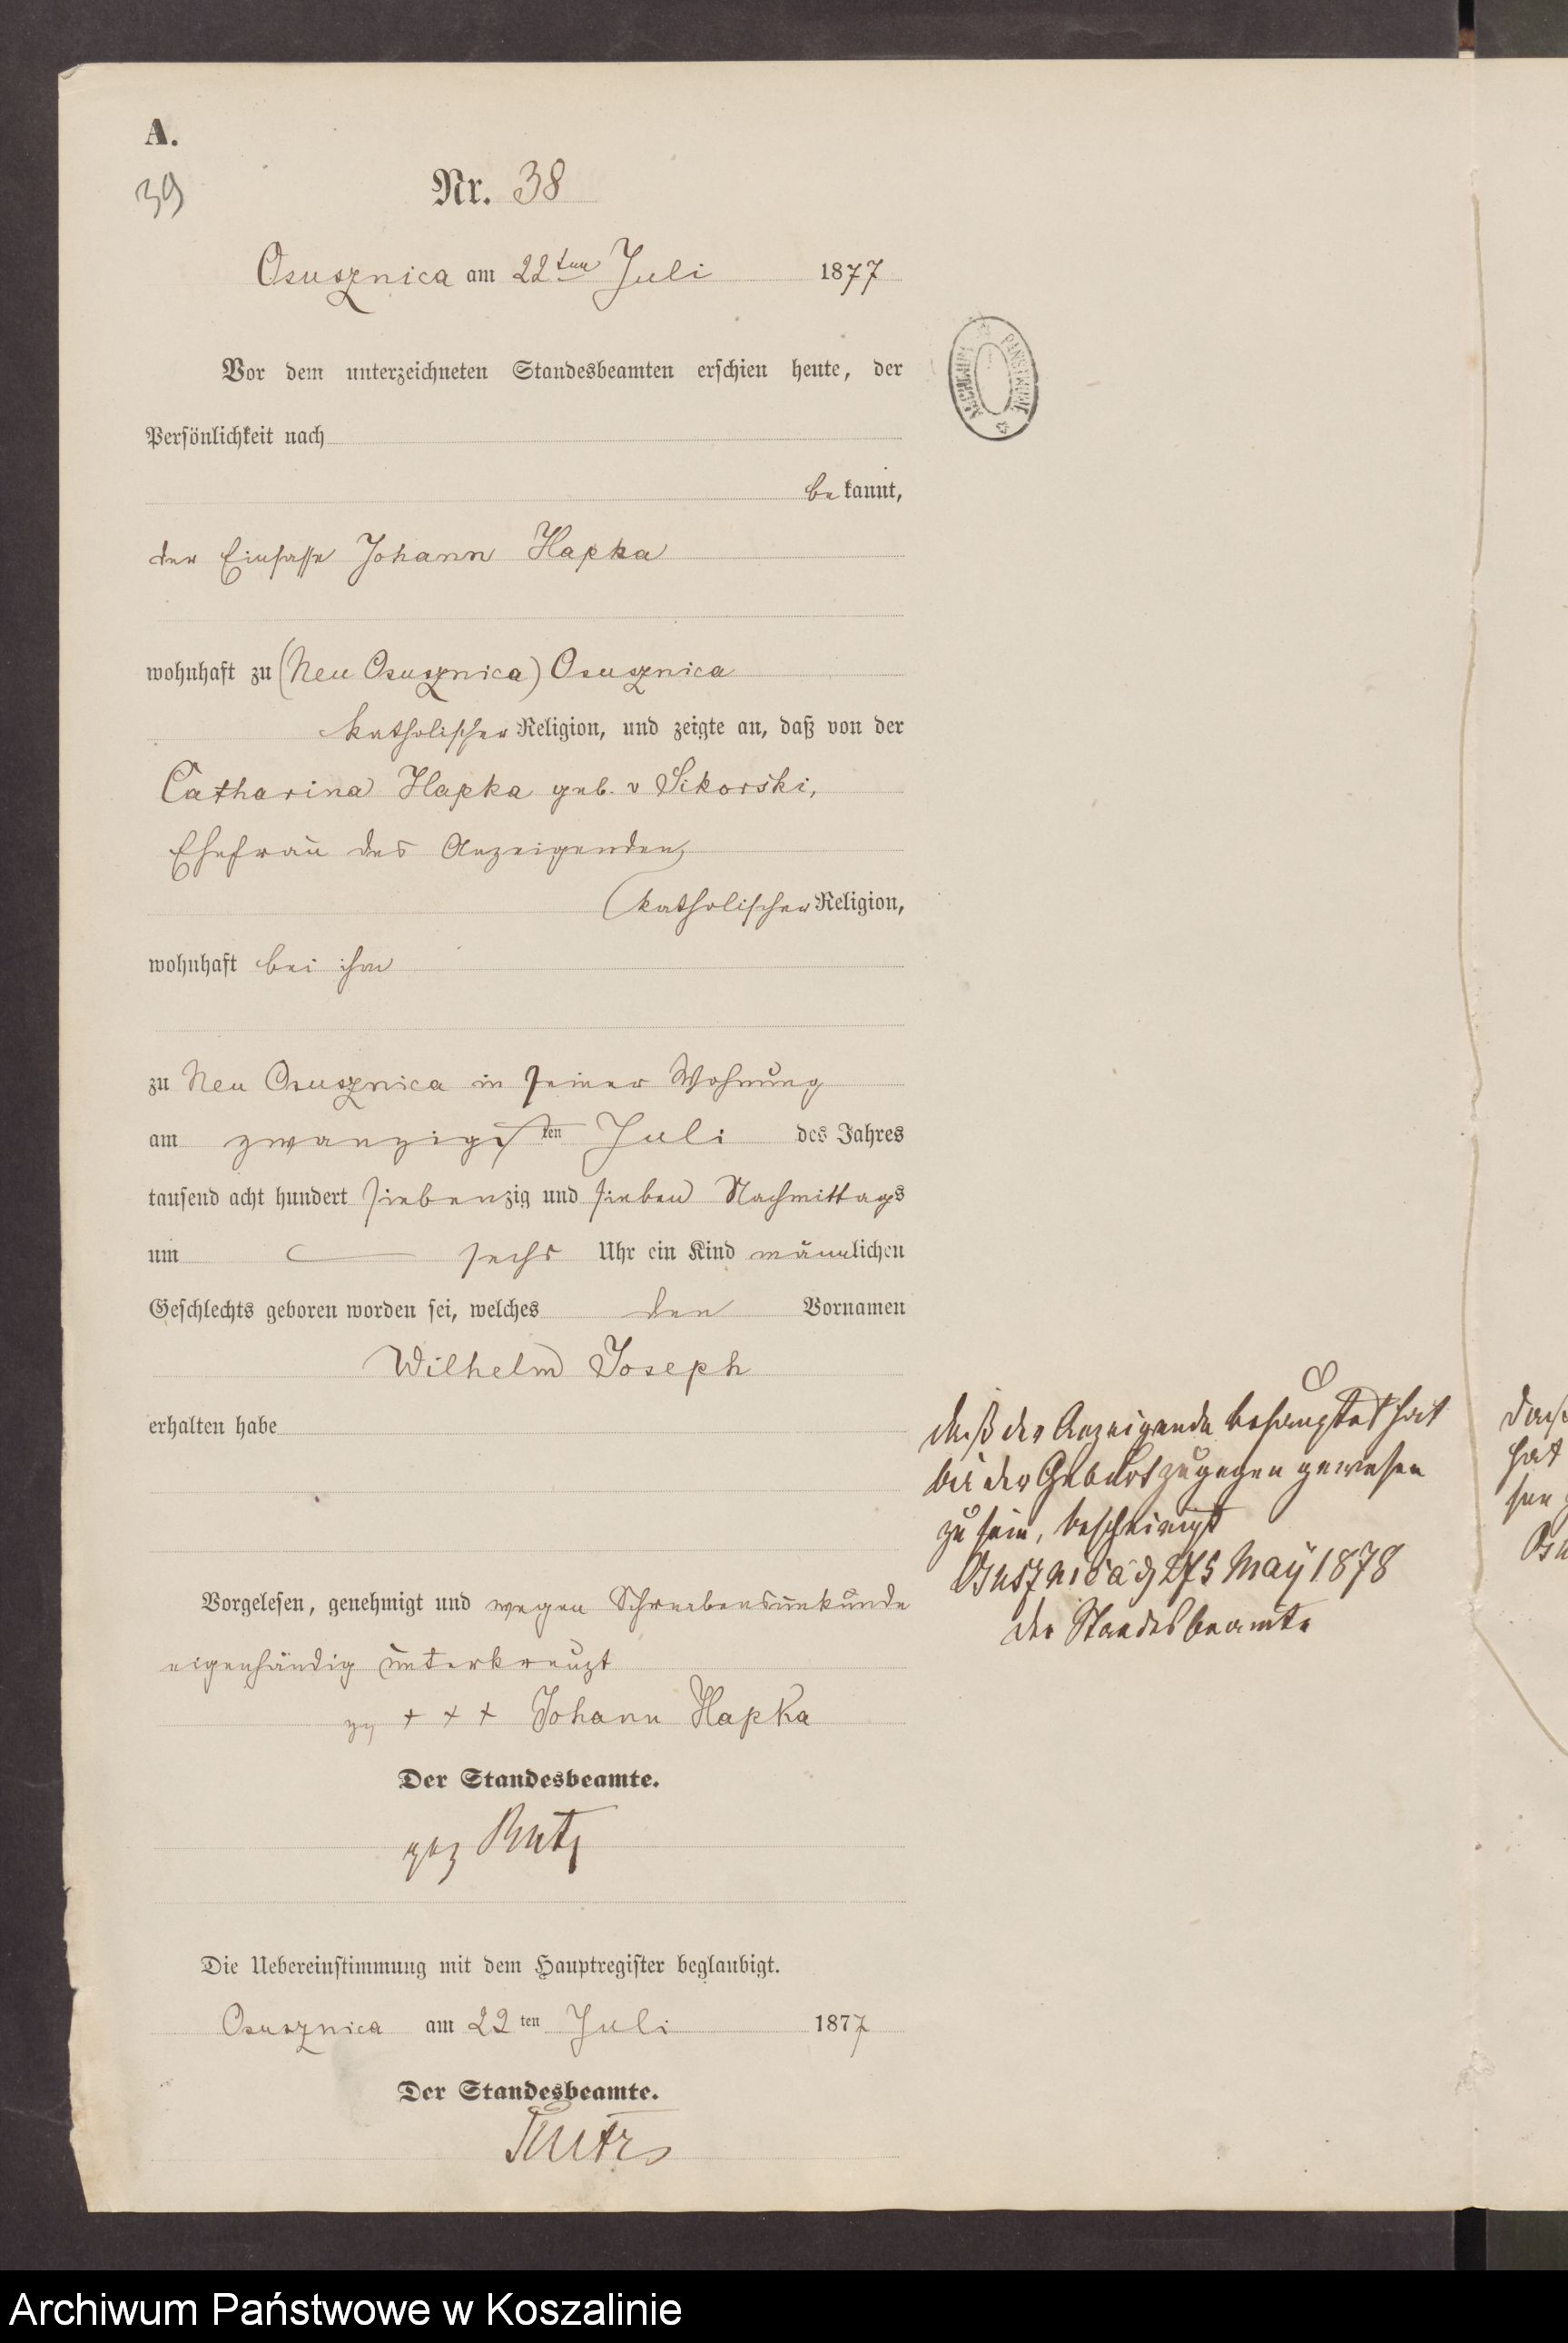 A.
39
Nr. 38
Osusznica am 22ten Juli 1877
ARCHIWUM PAŃSTWOWE
Vor dem unterzeichneten Standesbeamten erschien heute, der
Persönlichkeit nach
be kannt,
der Einsasse Johann Hapka
wohnhaft zu (Neu Osusznica) Osusznica
katholischer Religion, und zeigte an, daß von der
Catharina Hapka geb. v Sikorski,
Ehefrau des Anzeigenden,
katholischer Religion,
wohnhaft bei ihm
zu Neu Osusznica in seiner Wohnung
am zwanzigsten Juli des Jahres
tausend acht hundert siebenzig und sieben Nachmittags
um sechs Uhr ein Kind männlichen
Geschlechts geboren worden sei, welches den Vornamen
Wilhelm Joseph
erhalten habe
daß der Anzeigende behauptet hat
bei der Geburt zugegen gewesen
zu sein, bescheinigt
Osusznica d 27 5 May 1878
der Standesbeamte
Vorgelesen, genehmigt und wegen Schreibensunkunde
eigenhändig unterkreuzt
+ + + Johann Hapka
Der Standesbeamte.
gez
Die Uebereinstimmung mit dem Hauptregister beglaubigt.
Osusznica am 22ten Juli 1877
Der Standesbeamte.
Archiwum Państwowe w Koszalinie